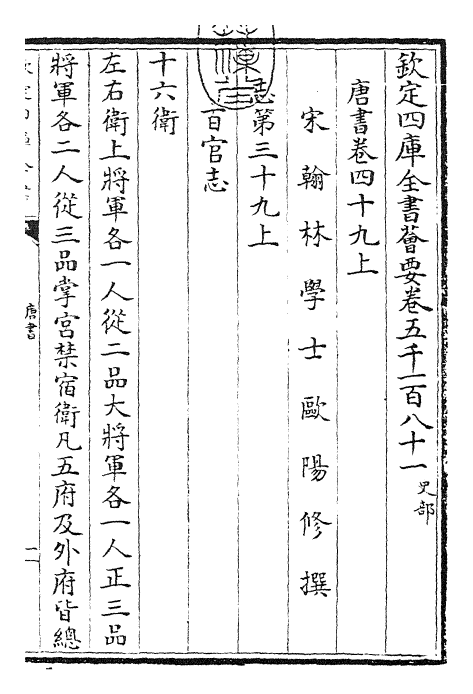 欽定四庫全書薈要卷五千一百八十一 史部
唐書卷四十九上
宋翰林學士歐陽修撰
志第三十九上
百官志
十六衛
左右衛上將軍各一人從二品大將軍各一人正三品
將軍各二人從三品掌宮禁宿衛凡五府及外府皆總
唐書
一